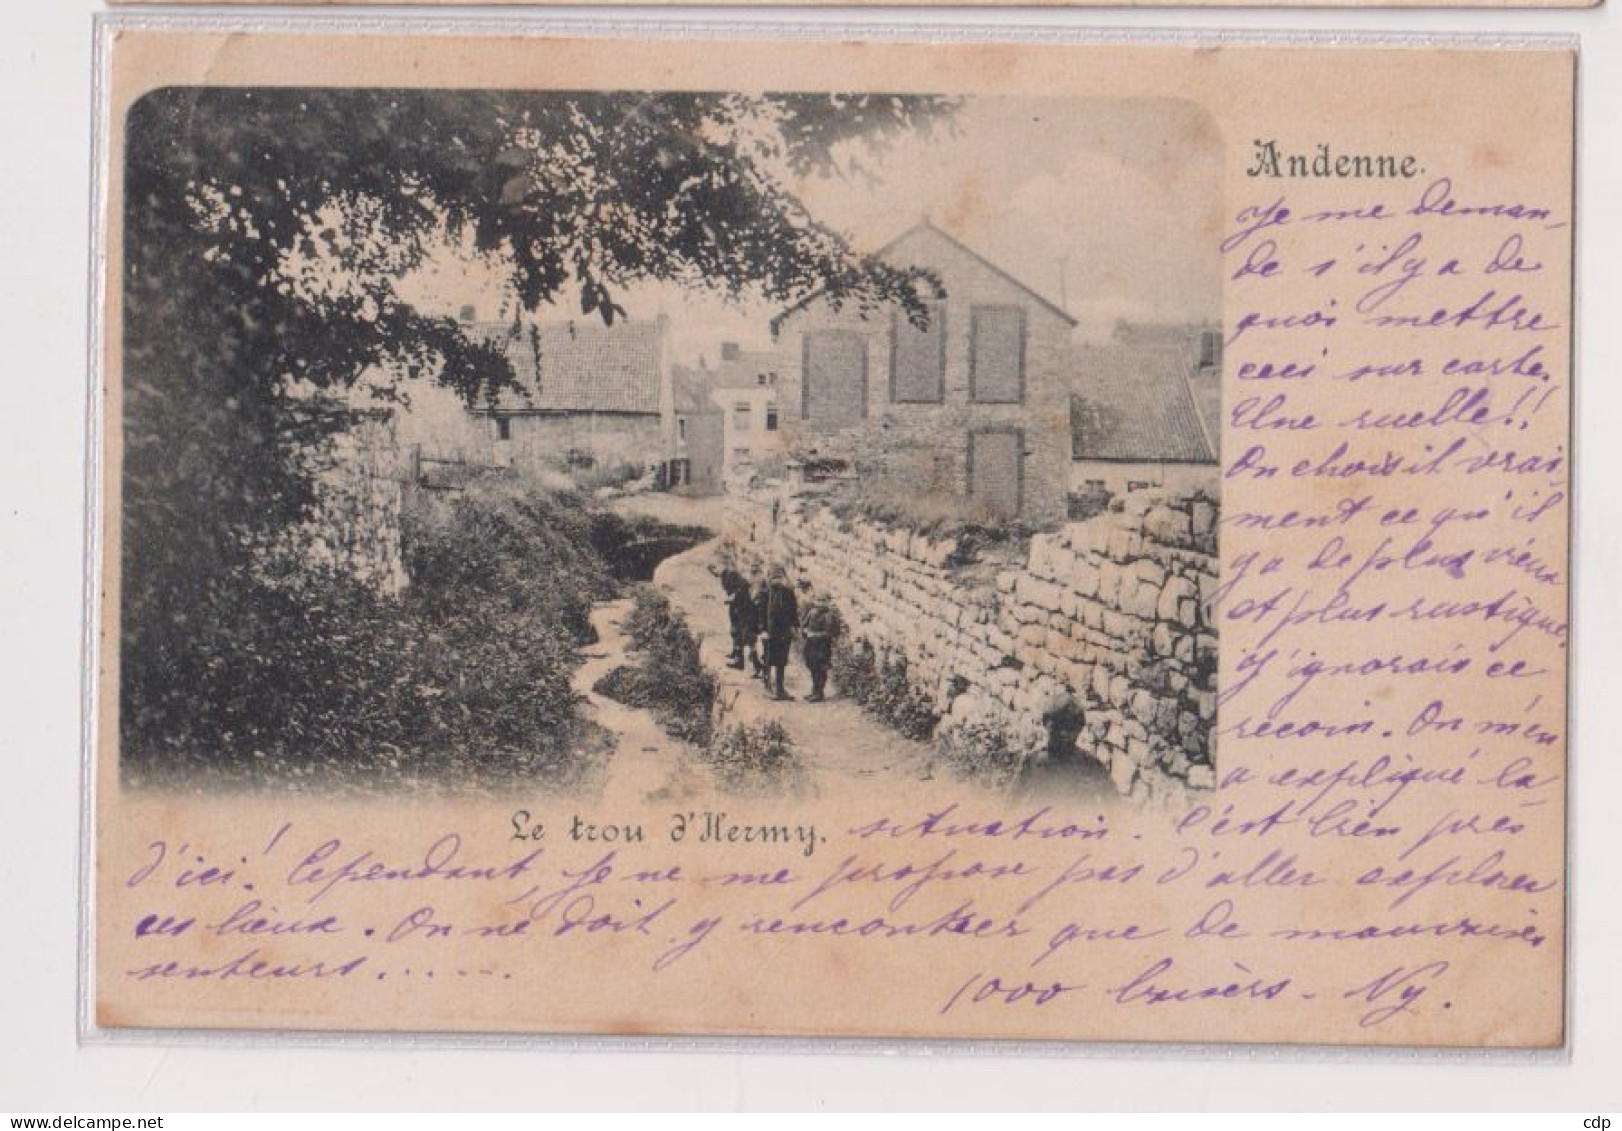 Andenne.
Je me deman-
de s'il y a de
quoi mettre
ceci sur carte.
Une ruelle!!
On choisit vrai-
ment ce qu'il
y a de plus vieux
et plus rustique.
J'ignorais ce
recoin. On m'en
a expliqué la
Le trou d'Hermy. situation. C'est bien près
d'ici! Cependant, je ne me propose pas d'aller explorer
ces lieux. On ne doit y rencontrer que de mauvaises
senteurs.......
1000 baisers - Ny.
delcampe.net
cdp